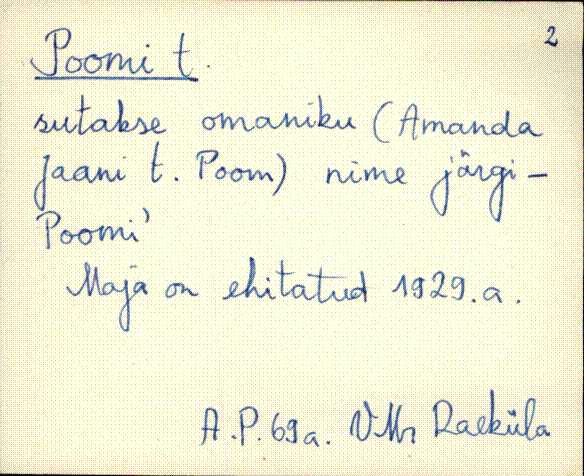 2
Poomi t.
sutakse omaniku (Amanda
Jaani t. Poom) nime järgi -
Poomi'
Maja on ehitatud 1929.a.
A.P. 69a. VMr Raeküla